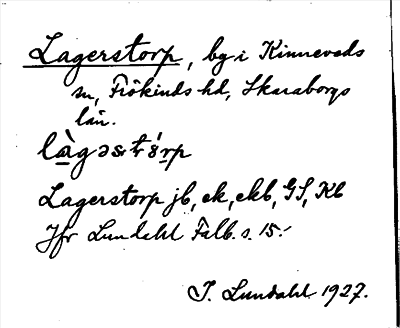 Lagerstorp, by i Kinneveds
sn, Frökinds hd, Skaraborgs
län.
làgǝstŕp
Lagerstorp jb, ek, ekb, GS, Kb
Jfr Lundahl Falb. s. 15.
I. Lundahl 1927.